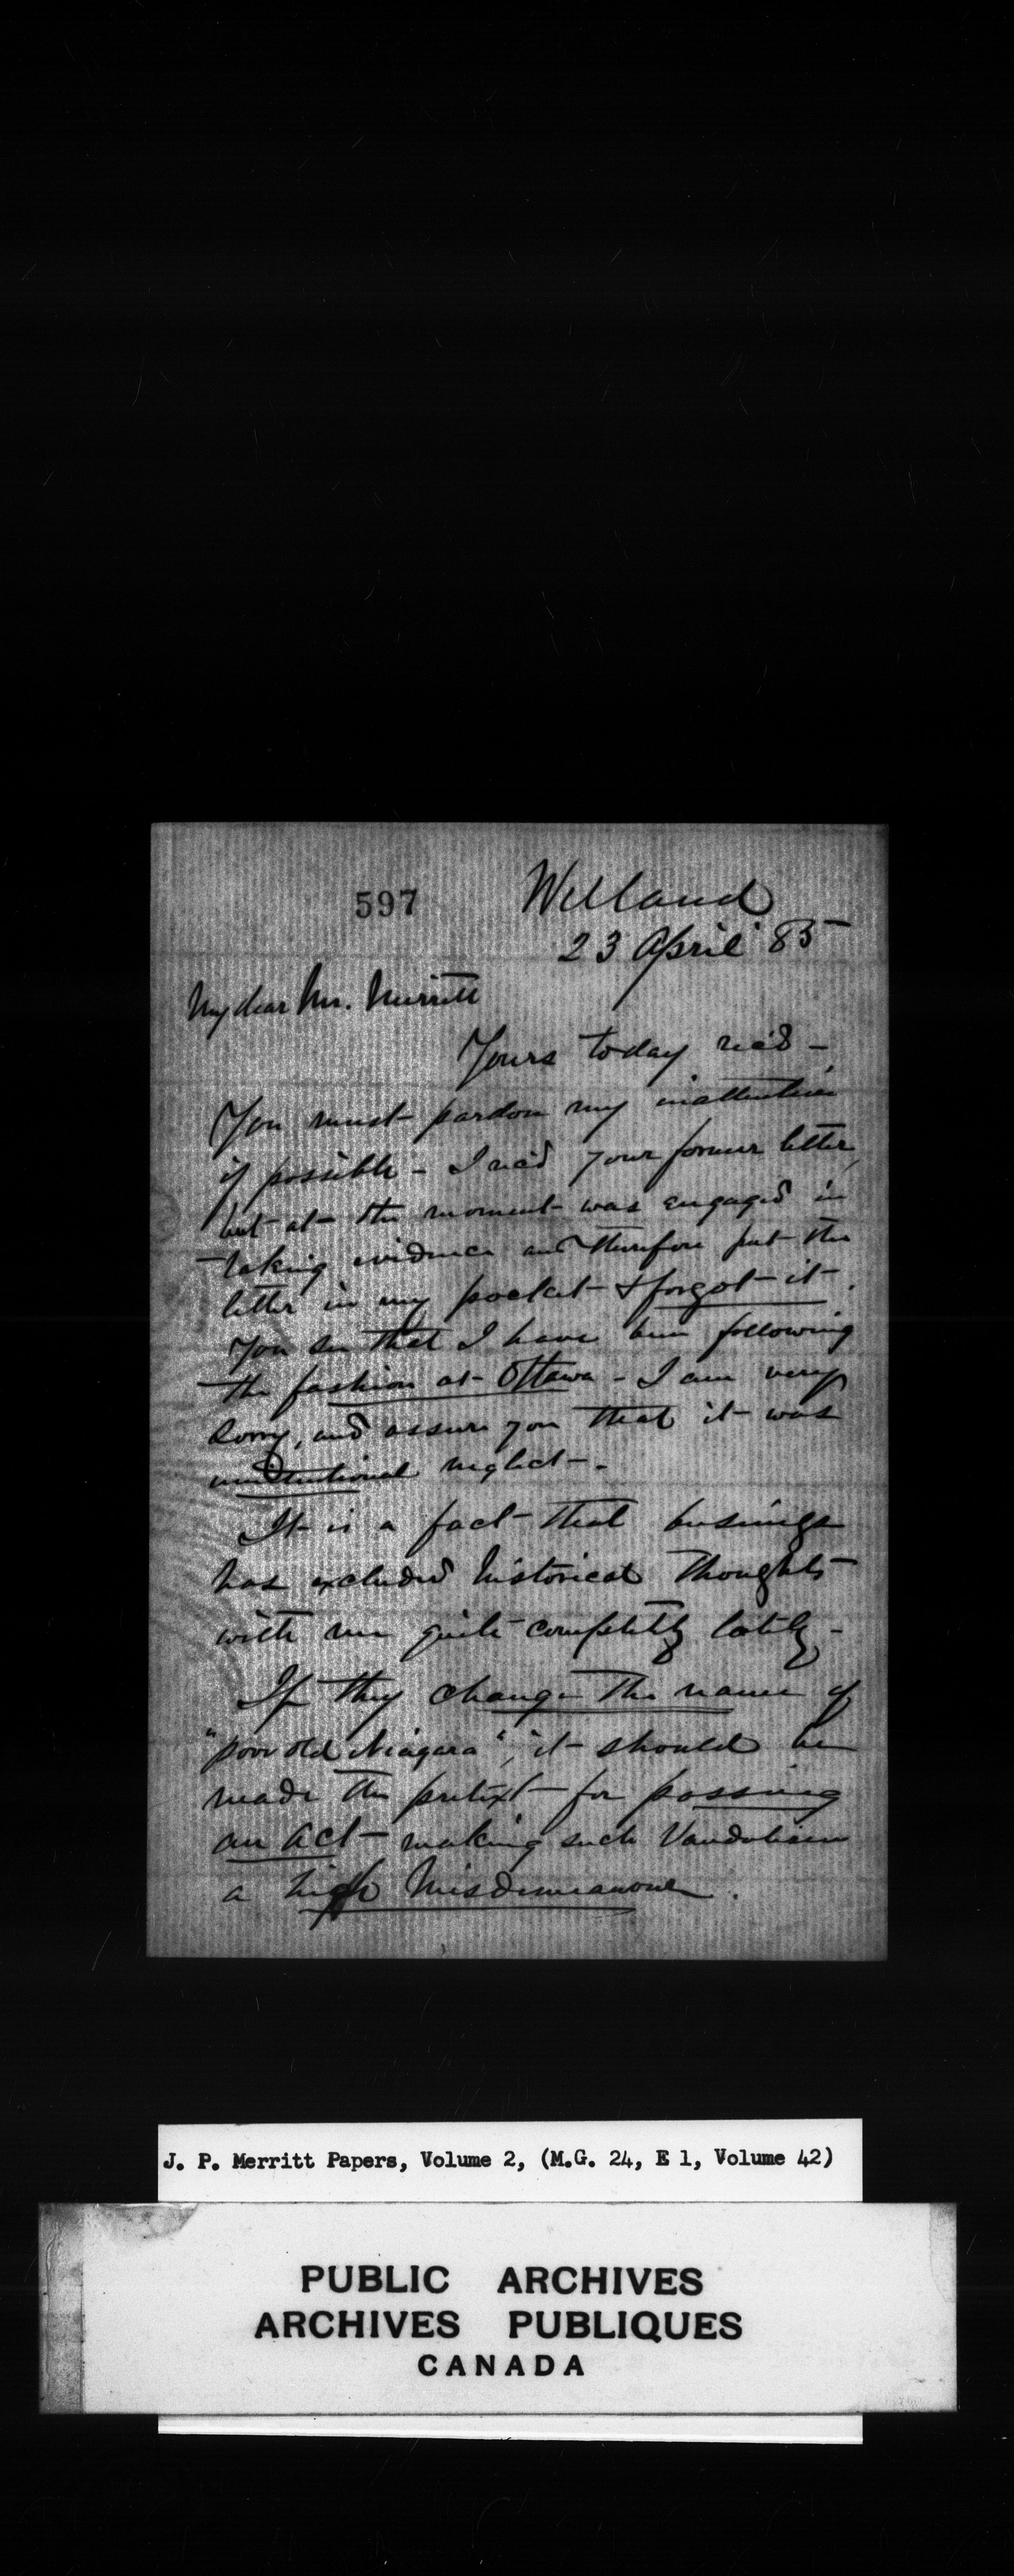 597
Welland
23 April 85
My dear Mr. Merritt
Yours today rec'd -
You must pardon my inattention
if possible - I rec'd your former letter,
but at the moment was engaged in
taking evidence and therefore put the
letter in my pocket & forgot it.
You see that I have been following
the fashion at Ottawa - I am very
sorry, and assure you that it was
neglect -.
It is a fact that business
has excluded historical thoughts
with me quite completely lately -
If they change the name of
"poor old Niagara", it should be
made the pretext for passing
an act making such Vandalism
a high Misdemeanour.
J. P. Merritt Papers, Volume 2, (M.G. 24, E 1, Volume 42)
PUBLIC ARCHIVES
ARCHIVES PUBLIQUES
CANADA